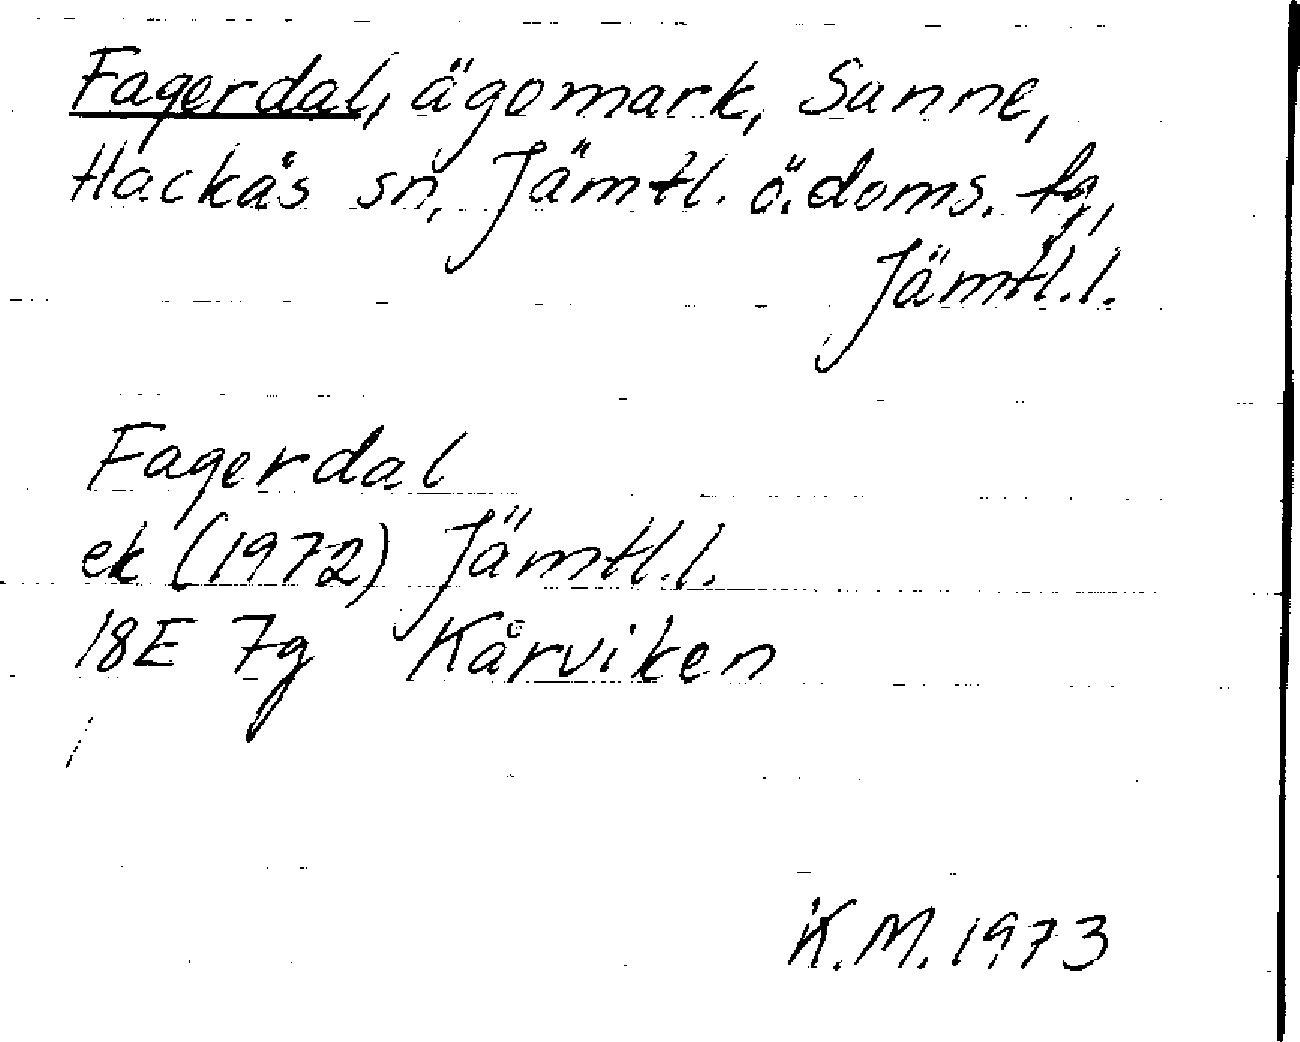 Fagerdal, ägomark, Sanne,
Hackås sn, Jämtl. ö. doms. tg,
Jämtl. l.
Fagerdal
ek (1972) Jämtl. l.
18E 7g Kårviken
K. M. 1973